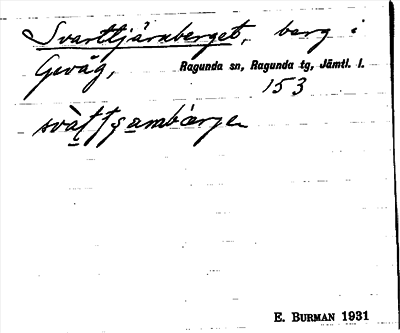 Svarttjärnberget, berg i
Gevåg, Ragunda sn, Ragunda tg, Jämtl. l.
153
E. BURMAN 1931